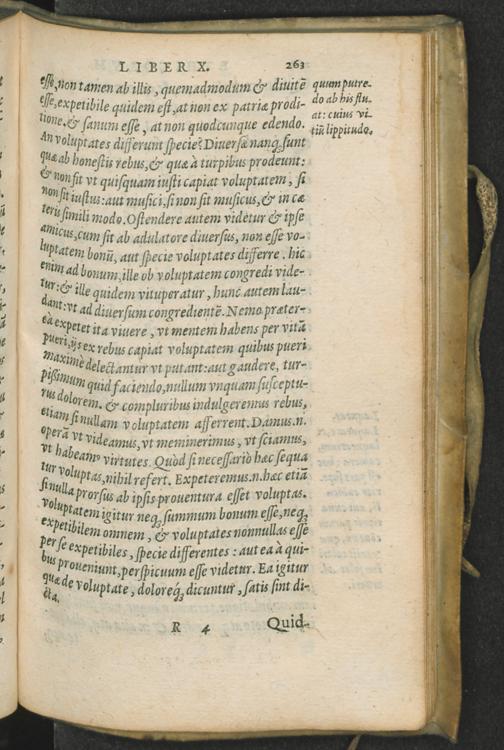 LIBER X. 263
esse, non tamen ab illis, quemadmodum & divitē
esse, expetibile quidem est, at non ex patriæ prodi-
tione. & sanum esse, at non quodcunque edendo.
An voluptates differunt specie? Diversæ nanq; sunt
quæ ab honestis rebus, & quæ à turpibus prodeunt:
& non fit vt quisquam iusti capiat voluptatem, si
non sit iustus: aut musici, si non sit musicus, & in cæ
teris simili modo. Ostendere autem videtur & ipse
amicus, cum sit ab adulatore diuersus, non esse vo-
luptatem bonū, aut specie voluptates differre. hic
enim ad bonum, ille ob voluptatem congredi vide-
tur: & ille quidem vituperatur, hunc autem lau-
dant: vt ad diuersum congredientē. Nemo præter-
eà expetet ita viuere, vt mentem habens per vitā
pueri, ijs ex rebus capiat voluptatem quibus pueri
maximè delectantur vt putant: aut gaudere, tur-
pissimum quid faciendo, nullum vnquam susceptu-
rus dolorem. & compluribus indulgeremus rebus,
etiam si nullam voluptatem afferrent. Damus.n.
operā vt videamus, vt meminerimus, vt sciamus,
vt habeamꝰ virtutes. Quòd si necessariò hæc sequa
tur voluptas, nihil refert. Expeteremus.n. hæc etiā
si nulla prorsus ab ipsis prouentura esset voluptas.
voluptatem igitur neq; summum bonum esse, neq;
expetibilem omnem, & voluptates nonnullas esse
per se expetibiles, specie differentes: aut ea à qui-
bus proueniunt, perspicuum esse videtur. Ea igitur
quæ de voluptate, doloreq; dicuntur, satis sint di-
cta.
R 4 Quid-
quum putre-
do ab his flu-
at: cuius vi-
tiū lippitudo.